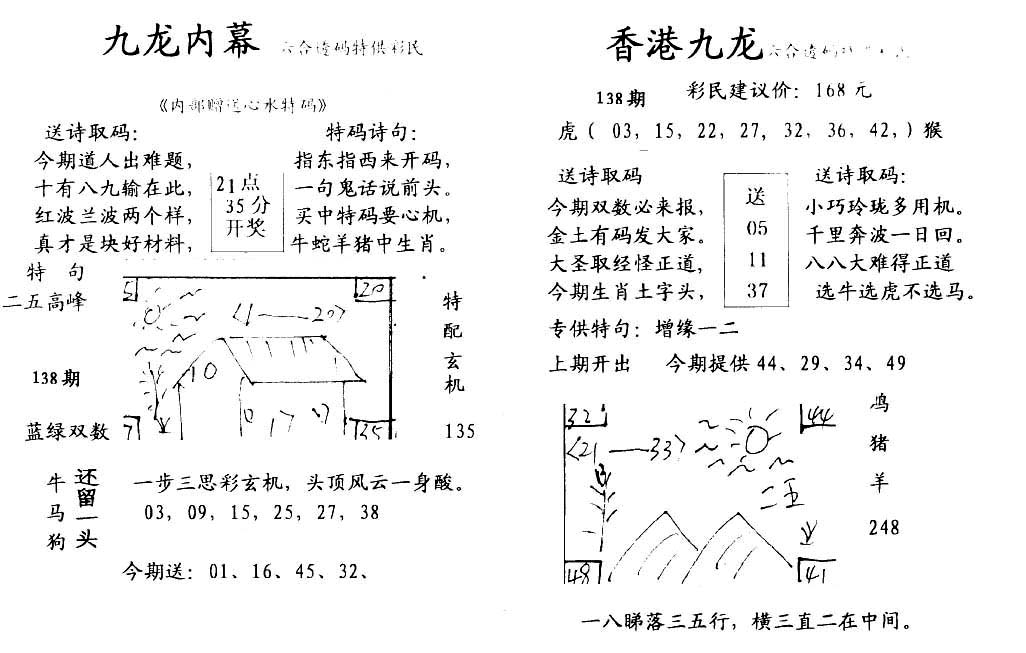 九龙内幕 六合透码特供彩民
《内部赠送心水特码》
送诗取码：
今期道人出难题，
十有八九输在此，
红波兰波两个样，
真才是块好材料，
21点
35分
开奖
特码诗句：
指东指西来开码，
一句鬼话说前头。
买中特码要心机，
牛蛇羊猪中生肖。
特 句
二五高峰
138期
蓝绿双数
5
20
<1——20>
10
0 17
7
35
特
配
玄
机
135
牛
马
狗
还
留
一
头
一步三思彩玄机，头顶风云一身酸。
03，09，15，25，27，38
今期送：01、16、45、32、
香港九龙 六合透码
138期
彩民建议价：168元
虎（ 03，15，22，27，32，36，42，）猴
送诗取码
今期双数必来报，
金土有码发大家。
大圣取经怪正道，
今期生肖土字头，
送
05
11
37
送诗取码：
小巧玲珑多用机。
千里奔波一日回。
八八大难得正道
选牛选虎不选马。
专供特句：增缘一二
上期开出 今期提供44、29、34、49
32
44
<21——33>
二五
48
41
鸡
猪
羊
248
一八睇落三五行，横三直二在中间。